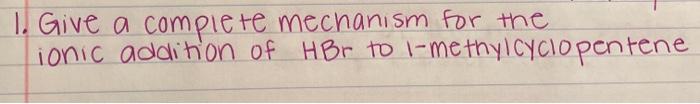 1. Give a complete mechanism for the
ionic addition of HBr to 1-methylcyclopentene